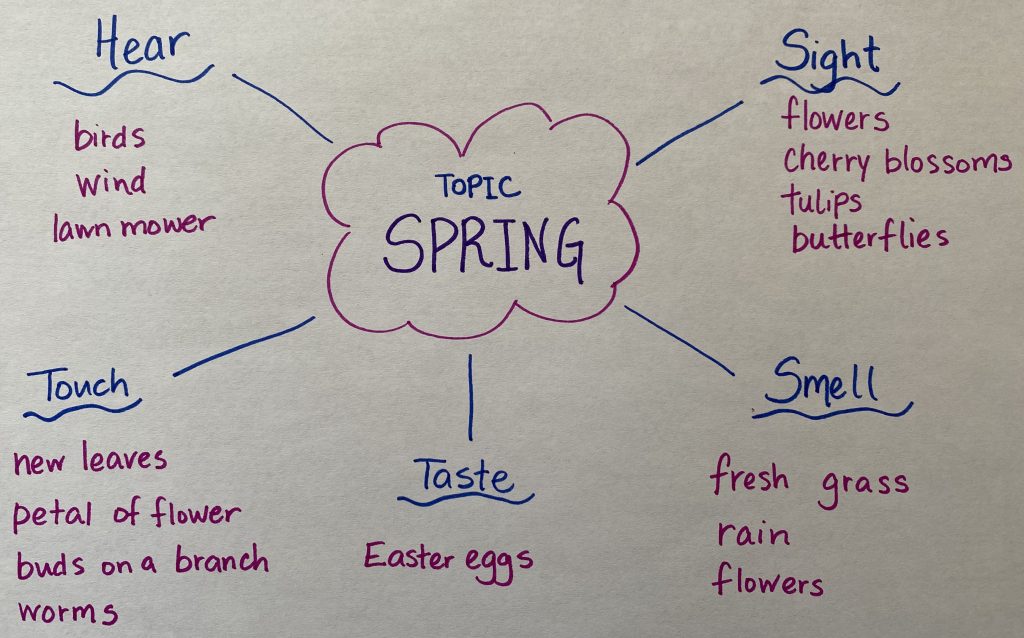 Hear
birds
wind
lawn mower
TOPIC
SPRING
Sight
flowers
cherry blossoms
tulips
butterflies
Touch
new leaves
petal of flower
buds on a branch
worms
Taste
Easter eggs
Smell
fresh grass
rain
flowers